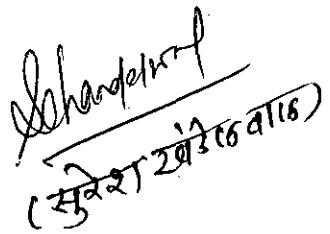 SKhandelwal
(सुरेश खंडेलवाल)